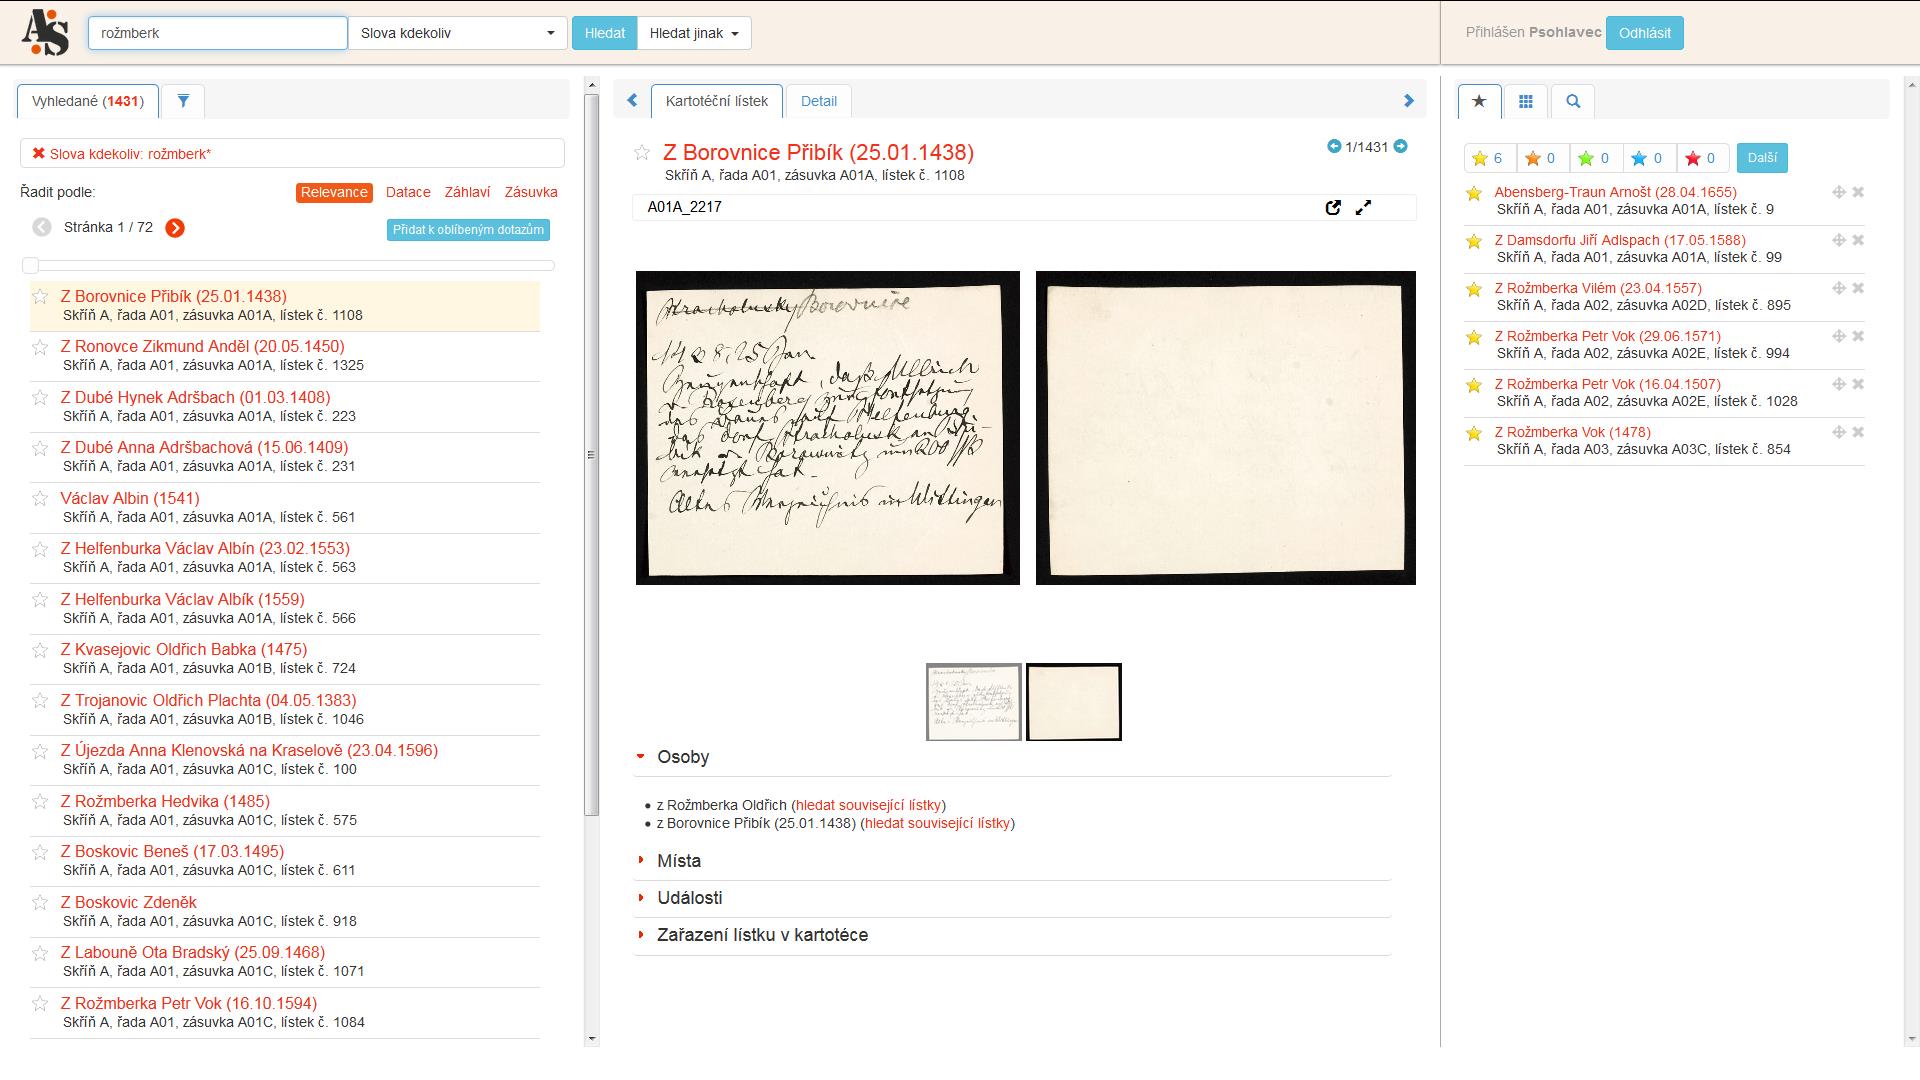 AS
rožmberk
Slova kdekoliv
Hledat
Hledat jinak
Přihlášen Psohlavec
Odhlásit
Vyhledané (1431)
Slova kdekoliv: rožmberk*
Řadit podle:
Relevance
Datace
Záhlaví
Zásuvka
Stránka 1 / 72
Přidat k oblíbeným dotazům
Z Borovnice Přibík (25.01.1438)
Skříň A, řada A01, zásuvka A01A, lístek č. 1108
Z Ronovce Zikmund Anděl (20.05.1450)
Skříň A, řada A01, zásuvka A01A, lístek č. 1325
Z Dubé Hynek Adršbach (01.03.1408)
Skříň A, řada A01, zásuvka A01A, lístek č. 223
Z Dubé Anna Adršbachová (15.06.1409)
Skříň A, řada A01, zásuvka A01A, lístek č. 231
Václav Albin (1541)
Skříň A, řada A01, zásuvka A01A, lístek č. 561
Z Helfenburka Václav Albín (23.02.1553)
Skříň A, řada A01, zásuvka A01A, lístek č. 563
Z Helfenburka Václav Albík (1559)
Skříň A, řada A01, zásuvka A01A, lístek č. 566
Z Kvasejovic Oldřich Babka (1475)
Skříň A, řada A01, zásuvka A01B, lístek č. 724
Z Trojanovic Oldřich Plachta (04.05.1383)
Skříň A, řada A01, zásuvka A01B, lístek č. 1046
Z Újezda Anna Klenovská na Kraselově (23.04.1596)
Skříň A, řada A01, zásuvka A01C, lístek č. 100
Z Rožmberka Hedvika (1485)
Skříň A, řada A01, zásuvka A01C, lístek č. 575
Z Boskovic Beneš (17.03.1495)
Skříň A, řada A01, zásuvka A01C, lístek č. 611
Z Boskovic Zdeněk
Skříň A, řada A01, zásuvka A01C, lístek č. 918
Z Labouně Ota Bradský (25.09.1468)
Skříň A, řada A01, zásuvka A01C, lístek č. 1071
Z Rožmberka Petr Vok (16.10.1594)
Skříň A, řada A01, zásuvka A01C, lístek č. 1084
Kartotéční lístek
Detail
Z Borovnice Přibík (25.01.1438)
1/1431
Skříň A, řada A01, zásuvka A01A, lístek č. 1108
A01A_2217
Borovnice
25 Jan
daß Ullrich
Rosenberg
Helfenburg
das Dorf
Altes Verzeichnis in Wittingau
Osoby
z Rožmberka Oldřich (hledat související lístky)
z Borovnice Přibík (25.01.1438) (hledat související lístky)
Místa
Události
Zařazení lístku v kartotéce
6
0
0
0
0
Další
Abensberg-Traun Arnošt (28.04.1655)
Skříň A, řada A01, zásuvka A01A, lístek č. 9
Z Damsdorfu Jiří Adlspach (17.05.1588)
Skříň A, řada A01, zásuvka A01A, lístek č. 99
Z Rožmberka Vilém (23.04.1557)
Skříň A, řada A02, zásuvka A02D, lístek č. 895
Z Rožmberka Petr Vok (29.06.1571)
Skříň A, řada A02, zásuvka A02E, lístek č. 994
Z Rožmberka Petr Vok (16.04.1507)
Skříň A, řada A02, zásuvka A02E, lístek č. 1028
Z Rožmberka Vok (1478)
Skříň A, řada A03, zásuvka A03C, lístek č. 854